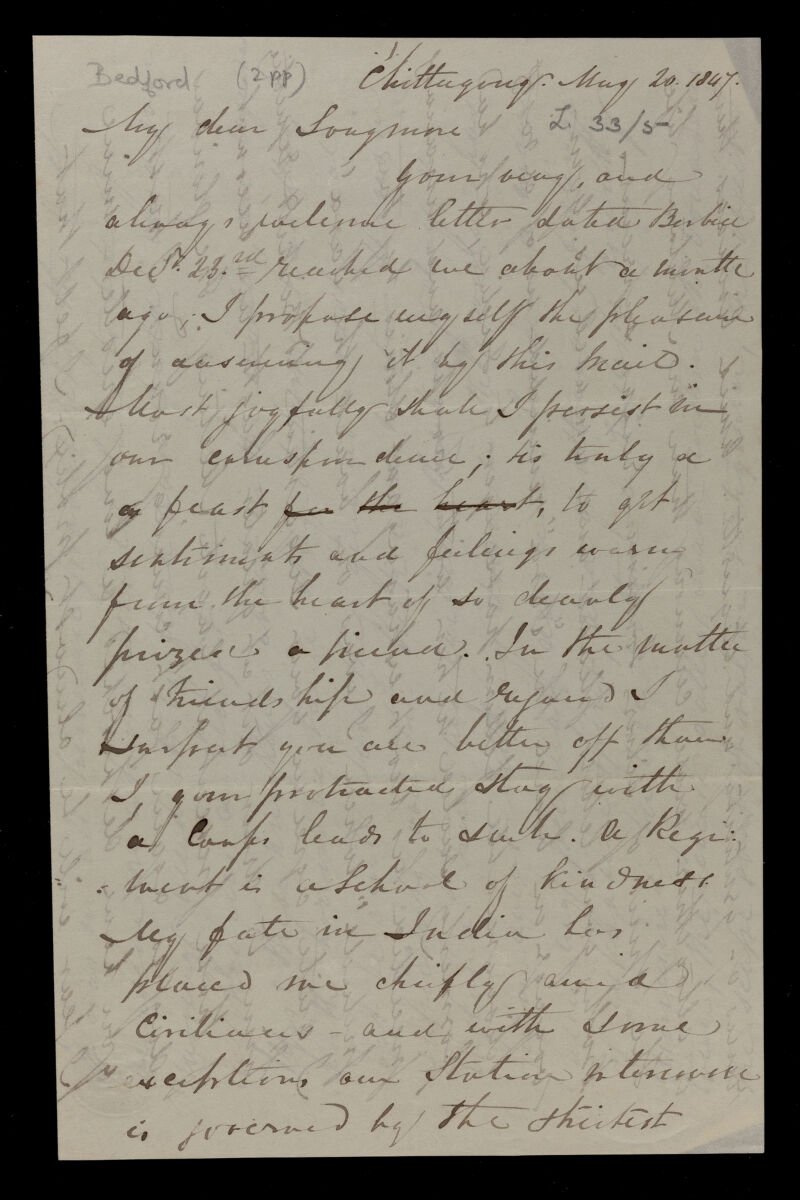 Bedford (2pp) Chittagong. May 20. 1847.
My dear Longmore L 33/5
Your very, and
always welcome letter dated Berbice
Decr. 23.rd reached me about a month
ago; I propose myself the pleasure
of answering it by this Mail.
Most joyfully shall I persist in
our correspondence; tis truly a
a feast for the heart, to get
sentiments and feelings warm
from the heart of so dearly
prized a friend. In the matter
of Friendship and regard I
suspect you are better off than
I, your protracted stay with
a Corps leads to such. A Regi-
-ment is a School of Kindness
My fate in India has
placed me chiefly amid
Civilians - and with some
exceptions our Station intercourse
is governed by the strictest